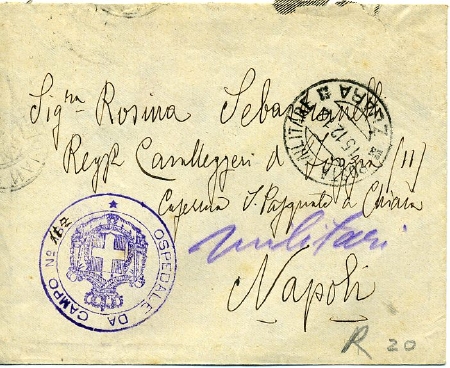 Sigra Rosina Sebastianelli
Regg Cavalleggeri di (11)
Caserma S. Pasquale a Chiaia
militari
Napoli
OSPEDALE DA CAMPO No
POSTA MILITARE
ZARA
R 20